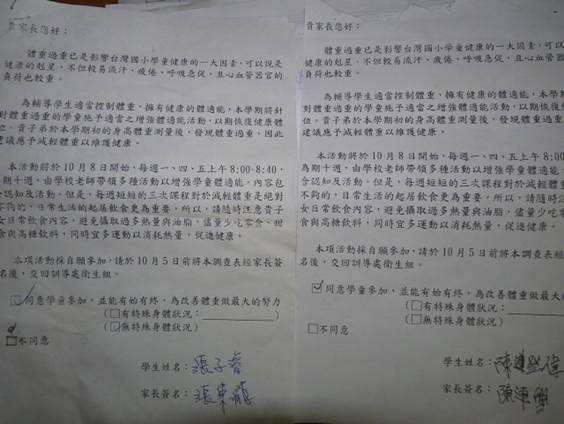 貴家長您好：
體重過重已是影響台灣國小學童健康的一大因素，可以說是
健康的剋星，不但較易流汗、疲倦、呼吸急促，且心血管器官的
負荷也較重。
為輔導學生適當控制體重，擁有健康的體適能，本學期將針
對體重過重的學童施予適當之增強體適能活動，以期恢復健康體
位。貴子弟於本學期初的身高體重測量後，發現體重過重，因此
建議應予減輕體重以維護健康。
本活動將於10月8日開始，每週一、四、五上午8:00-8:40，
期十週，由學校老師帶領多種活動以增強學童體適能，內容包
含認知及活動。但是，每週短短的三次課程對於減輕體重是絕對
不夠的，日常生活的起居飲食更為重要，所以，請隨時注意貴子
女日常飲食內容，避免攝取過多熱量與油脂，儘量少吃零食、甜
食與高糖飲料，同時宜多運動以消耗熱量，促進健康。
本項活動採自願參加，請於10月5日前將本調查表經家長簽
名後，交回訓導處衛生組。
☑同意學童參加，並能有始有終，為改善體重做最大的努力
（□有特殊身體狀況：　　　）
（☑無特殊身體狀況）
□不同意
學生姓名：張子睿
家長簽名：張東
貴家長您好：
體重過重已是影響台灣國小學童健康的一大因素，可以
健康的剋星，不但較易流汗、疲倦、呼吸急促，且心血管
負荷也較重。
為輔導學生適當控制體重，擁有健康的體適能，本學
對體重過重的學童施予適當之增強體適能活動，以期恢復
位。貴子弟於本學期初的身高體重測量後，發現體重過重，
建議應予減輕體重以維護健康。
本活動將於10月8日開始，每週一、四、五上午8:00-
為期十週，由學校老師帶領多種活動以增強學童體適能，
含認知及活動。但是，每週短短的三次課程對於減輕體重
不夠的，日常生活的起居飲食更為重要，所以，請隨時注
女日常飲食內容，避免攝取過多熱量與油脂，儘量少吃零
食與高糖飲料，同時宜多運動以消耗熱量，促進健康。
本項活動採自願參加，請於10月5日前將本調查表經
名後，交回訓導處衛生組。
☑同意學童參加，並能有始有終，為改善體重做最大
（□有特殊身體狀況：
（□無特殊身體狀況）
□不同意
學生姓名：陳
家長簽名：陳